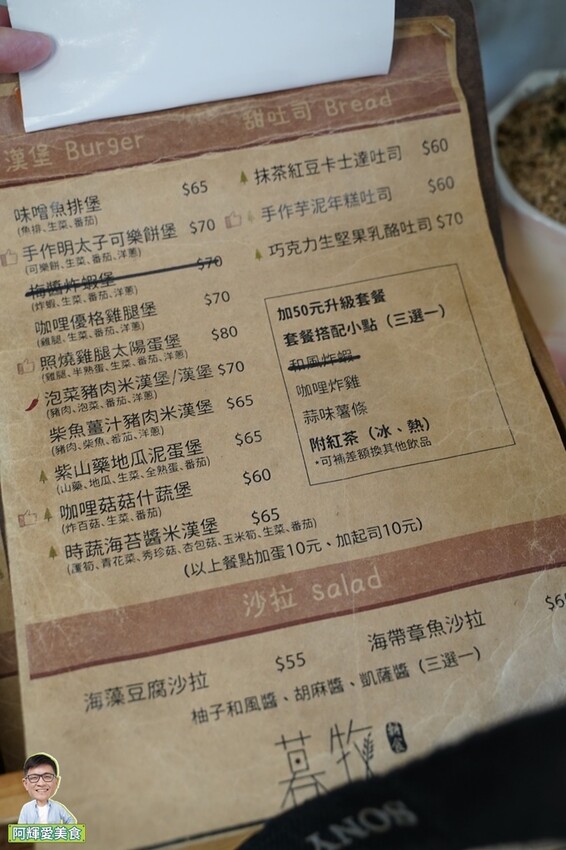 漢堡 Burger
味噌魚排堡 $65
(魚排、生菜、番茄)
手作明太子可樂餅堡 $70
(可樂餅、生菜、番茄、洋蔥)
梅醬炸蝦堡 $70
(炸蝦、生菜、番茄、洋蔥)
咖哩優格雞腿堡 $70
(雞腿、生菜、番茄、洋蔥)
照燒雞腿太陽蛋堡 $80
(雞腿、半熟蛋、生菜、番茄、洋蔥)
泡菜豬肉米漢堡/漢堡 $70
(豬肉、泡菜、番茄、洋蔥)
柴魚薑汁豬肉米漢堡 $65
(豬肉、柴魚、番茄、洋蔥)
紫山藥地瓜泥蛋堡 $65
(山藥、地瓜、生菜、全熟蛋、番茄)
咖哩菇菇什蔬堡 $60
(炸百菇、生菜、番茄)
時蔬海苔醬米漢堡 $65
(蘆筍、青花菜、秀珍菇、杏包菇、玉米筍、生菜、番茄)
(以上餐點加蛋10元、加起司10元)
甜吐司 Bread
抹茶紅豆卡士達吐司 $60
手作芋泥年糕吐司 $60
巧克力生堅果乳酪吐司 $70
加50元升級套餐
套餐搭配小點（三選一）
和風炸蝦
咖哩炸雞
蒜味薯條
附紅茶（冰、熱）
*可補差額換其他飲品
沙拉 salad
海藻豆腐沙拉 $55
海帶章魚沙拉
柚子和風醬、胡麻醬、凱薩醬（三選一）
暮牧
SONY
阿輝愛美食